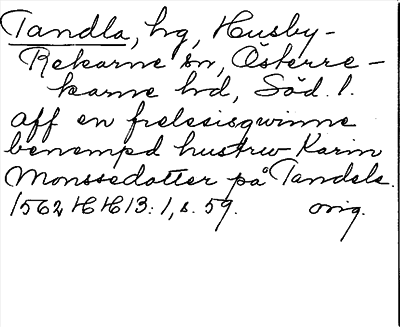 Tandla, hg, Husby-
Rekarne sn, Österre-
karne hd, Söd. l.
aff en frelesisqwinne
benempd hustrw Karin
Monssedotter på Tandela.
1562 HH 13:1, s. 59. orig.